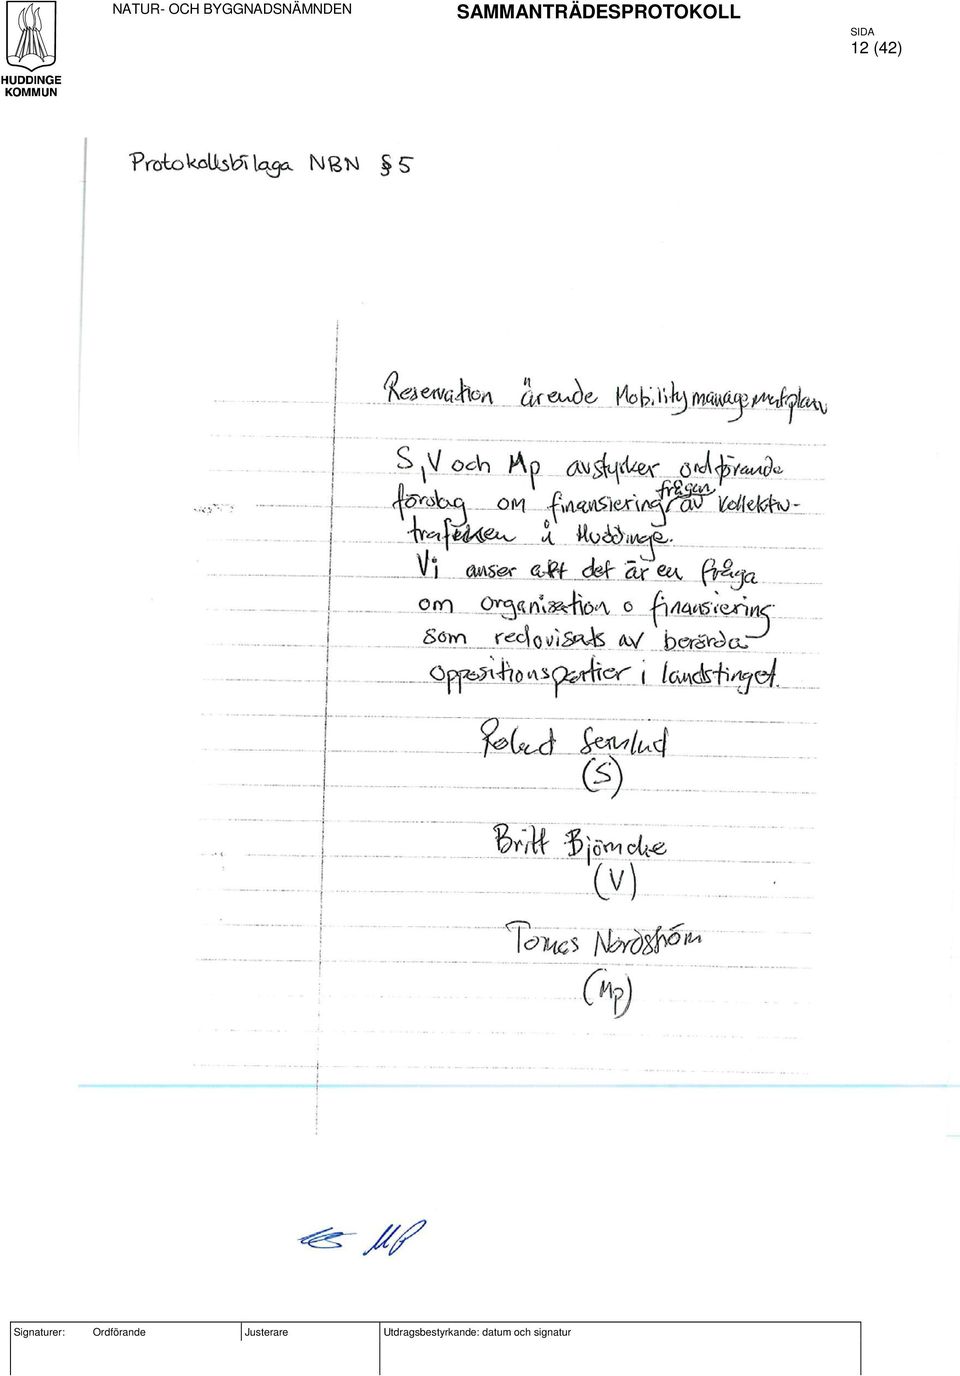 NATUR- OCH BYGGNADSNÄMNDEN
SAMMANTRÄDESPROTOKOLL
SIDA
12 (42)
HUDDINGE
KOMMUN
Protokollsbilaga NBN § 5
Reservation ärende Mobilitymanagementplan
S, V och Mp avstyrker ordförande
förslag om finansieringsfrågan av kollektiv-
trafiken i Huddinge.
Vi anser att det är en fråga
om organisation o finansiering
som redovisats av berörda
oppositionspartier i landstinget.
(S)
Britt Björneke
(V)
Tomas Nordström
(Mp)
Signaturer:
Ordförande
Justerare
Utdragsbestyrkande: datum och signatur